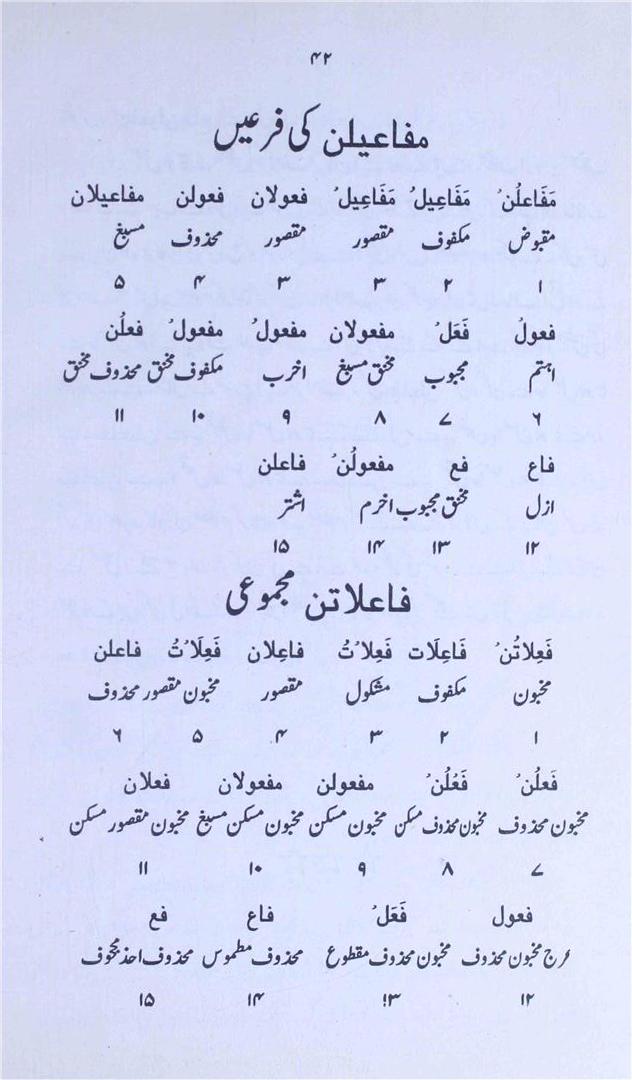 ۴۲
مفاعیلن کی فرعیں
مَفَاعلُن مَفَاعِیلُ مَفَاعِیلُ فعولان فعولن مفاعیلان
مقبوض مکفوف مقصور مقصور محذوف مسبغ
۱ ۲ ۳ ۳ ۴ ۵
فعول فَعَلُ مفعولان مفعولُ مفعولُ فعلُن
اہتم مجبوب مخنق مسبغ اخرب مکفوف مخنق محذوف مخنق
۶ ۷ ۸ ۹ ۱۰ ۱۱
فاع فع مفعولُن فاعلن
ازل مخنق مجبوب اخرم اشتر
۱۲ ۱۳ ۱۴ ۱۵
فاعلاتن مجموعی
فَعِلاتُن فَاعِلَات فَعِلاتُ فاعلان فَعِلَاتُ فاعلن
مخبون مکفوف مشکول مقصور مخبون مقصور محذوف
۱ ۲ ۳ ۴ ۵ ۶
فَعِلُن فَعْلُن مفعولن مفعولان فعلان
مخبون محذوف مخبون محذوف مسکن مخبون مسکن مخبون مسکن مسبغ مخبون مقصور مسکن
۷ ۸ ۹ ۱۰ ۱۱
فعول فَعَلُ فاع فع
عرج مخبون محذوف مخبون محذوف مقطوع محذوف مطموس محذوف احذ مجحوف
۱۲ ۱۳ ۱۴ ۱۵